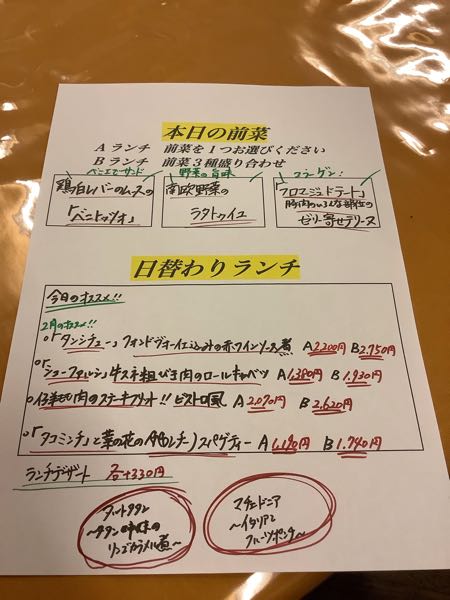 本日の前菜
Aランチ 前菜を1つお選びください
Bランチ 前菜3種盛り合わせ
鶏白レバーのムースの
「ベニトマツオ」
野菜の旨味
南欧野菜の
ラタトゥイユ
コラーゲン!
「フロマージュドテート」
豚肉のいろんな部位の
ゼリー寄せテリーヌ
日替わりランチ
今日のオススメ!!
2月のオススメ!!
○「タンシチュー」フォンドヴォー仕込みの赤ワインソース煮 A2200円 B2,750円
○「シューファルシ」牛スネ粗びき肉のロールキャベツ A1,380円 B1,930円
○仔羊もも肉のステーキフリット!!ビストロ風 A2,070円 B2,620円
○「タコミンチ」と菜の花の スパゲティー A1,190円 B1,740円
ランチデザート 各+330円
タルトタタン
〜タタン味の
リンゴカラメル煮〜
マチェドニア
〜イタリアン
フルーツポンチ〜